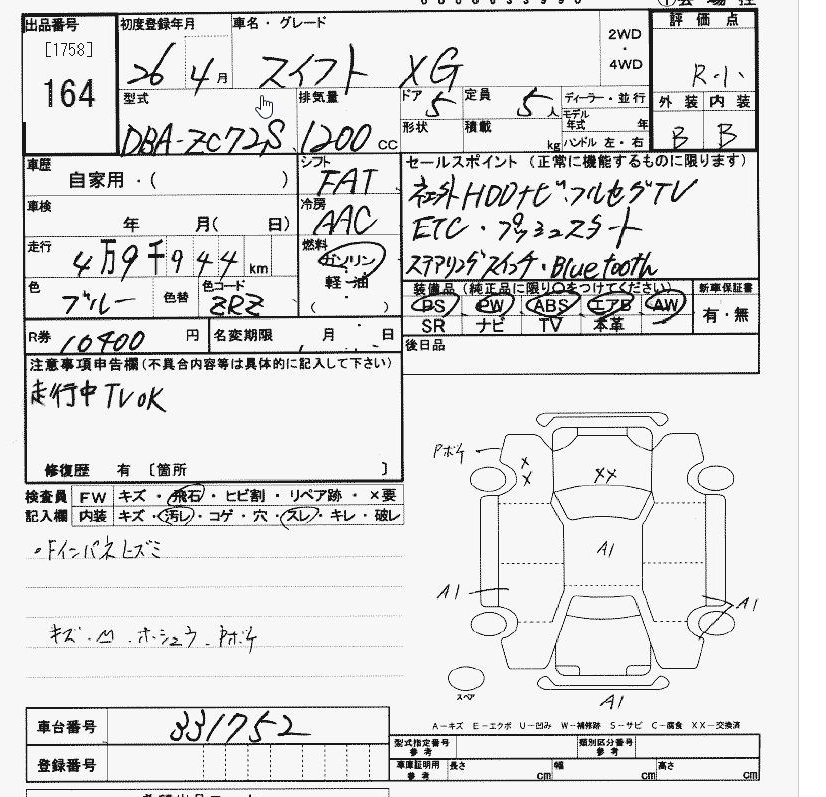 出品番号
[1758]
164
初度登録年月
26 4月
車名・グレード
スイフト XG
2WD
・
4WD
評価点
R・1・
外装 内装
B B
型式
DBA-ZC72S
排気量
1200 CC
ドア 5
定員 5人
ディーラー・並行
形状
積載 kg
モデル年式 年
ハンドル 左・右
車歴
自家用・( )
シフト
FAT
車検
年 月( 日)
冷房
AAC
走行
4万9千944km
燃料
ガソリン
軽・油
( ・ )
色
ブルー
色替
色コード
ZRZ
R券 10400 円
名変期限 月 日
セールスポイント (正常に機能するものに限ります)
ネ外HDDナビ・フルセグTV
ETC・プッシュスタート
ステアリングスイッチ・Bluetooth
装備品 (純正品に限り○をつけてください)
PS PW ABS エアB AW
SR ナビ TV 本革
新車保証書
有・無
後日品
注意事項申告欄(不具合内容等は具体的に記入して下さい)
走行中TVOK
修復歴 有 〔箇所 〕
検査員
記入欄
FW キズ・飛石・ヒビ割・リペア跡・×要
内装 キズ・汚レ・コゲ・穴・スレ・キレ・破レ
・Fインパネヒズミ
キズ・凹・ホシュウ・Pボケ
Pボケ
X
X
XX
A1
A1
A1
A1
スペア
A-キズ E-エクボ U-凹み W-補修跡 S-サビ C-腐食 XX-交換済
車台番号 331752
登録番号
型式指定番号
参考
類別区分番号
参考
車庫証明用
参考
長さ cm
幅 cm
高さ cm